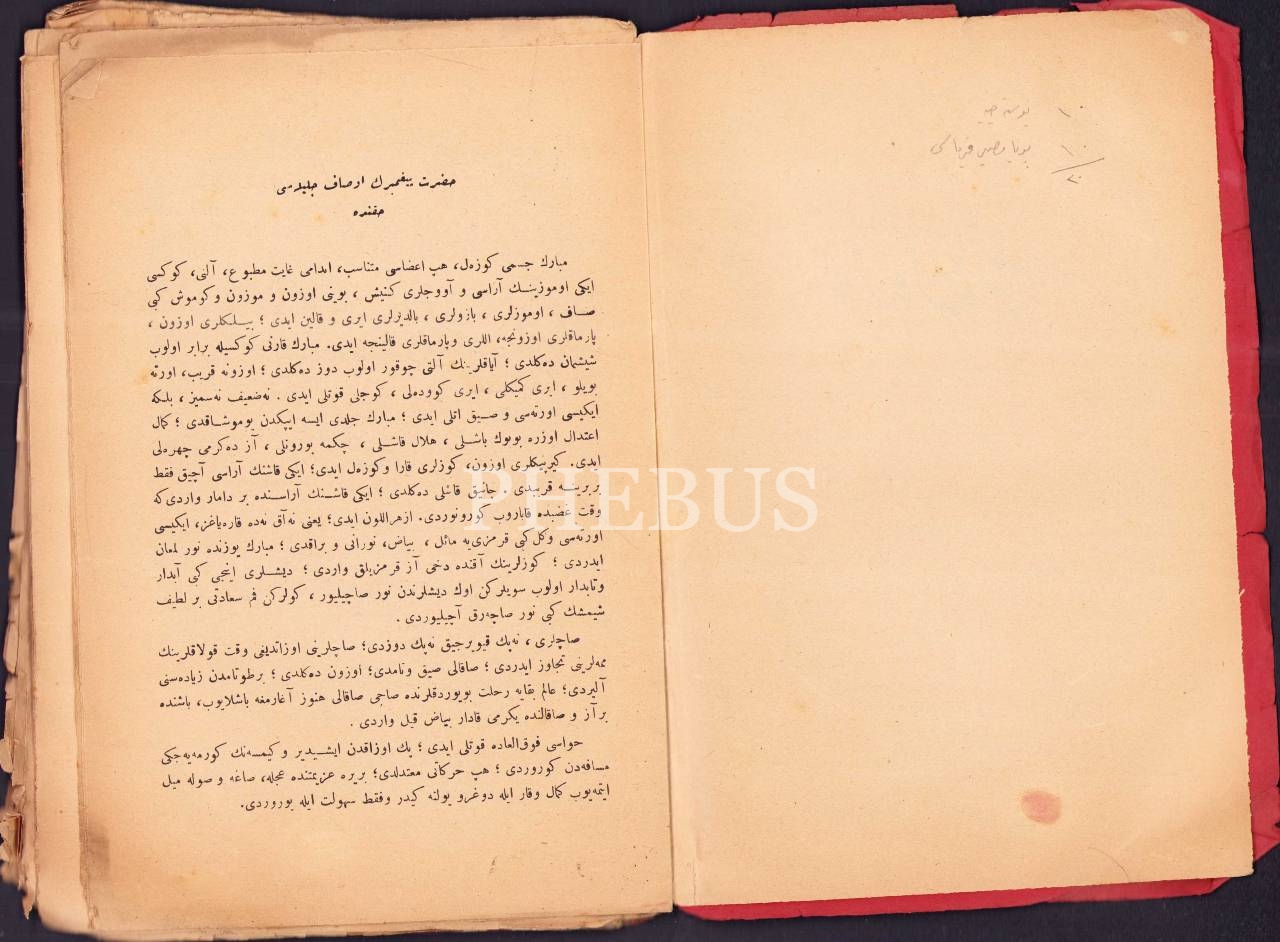 حضرت پيغمبرك اوصاف جليله‌سی
حقنده
مبارك جسمی كوزه‌ل، هپ اعضاسی متناسب، اندامی غايت مطبوع، آلنی، كوكسی
ايكی اوموزينك آراسی و آووجلری كنيش ، بوينی اوزون و موزون و كوموش كبی
صاف ، اوموزلری ، بازولری ، بالديرلری ايری و قالين ايدی ؛ بيلكلری اوزون ،
پارماقلری اوزونجه، اللری وپارماقلری قالينجه ايدی. مبارك قارنی كوكسيله برابر اولوب
شيشمان ده‌كلدی ؛ آياقلرينك آلتی چوقور اولوب دوز ده‌كلدی ؛ اوزونه قريب، اورته
بويلو ، ايری كميكلی ، ايری كووده‌لی ، كوجلی قوتلی ايدی . نه‌ضعيف نه‌سميز ، بلكه
ايكيسی اورته‌سی و صيق اتلی ايدی ؛ مبارك جلدی ايسه ايپكدن يوموشاقدی ؛ كمال
اعتدال اوزره بويوك باشلی ، هلال قاشلی ، چكمه بورونلی ، آز ده‌كرمی چهره‌لی
ايدی. كيرپيكلری اوزون، كوزلری قارا وكوزه‌ل ايدی؛ ايكی قاشنك آراسی آچيق فقط
بربرينه قريبدی . چاتيق قاشلی ده‌كلدی ؛ ايكی قاشنك آراسنده بر دامار واردی‌كه
وقت غضبده قاباروب كورونوردی. ازهراللون ايدی؛ يعنی نه‌آق نه‌ده قاره‌ياغز، ايكيسی
اورته‌سی وكل‌كبی قرمزی‌يه مائل ، بياض، نورانی و براقدی ؛ مبارك يوزنده نور لمعان
ايدردی ؛ كوزلرينك آقنده دخی آز قرمزيلق واردی ؛ ديشلری اينجی كبی آبدار
وتابدار اولوب سويلركن اوك ديشلرندن نور صاچيليور ، كولركن فم سعادتی بر لطيف
شيمشك كبی نور صاچه‌رق آچيليوردی .
صاچلری ، نه‌پك قيويرجيق نه‌پك دوزدی؛ صاچلرينی اوزاتديغی وقت قولاقلرينك
ممه‌لرينی تجاوز ايدردی ؛ صاقالی صيق وتامدی؛ اوزون ده‌كلدی ؛ برطوتامدن زياده‌سنی
آليردی؛ عالم بقايه رحلت بويوردقلرنده صاچی صاقالی هنوز آغارمغه باشلايوب، باشنده
برآز و صاقالنده يكرمی قادار بياض قيل واردی .
حواسی فوق‌العاده قوتلی ايدی ؛ پك اوزاقدن ايشيدير و كيمسه‌نك كورمه‌يه‌جكی
مسافه‌دن كوروردی ؛ هپ حركاتی معتدلدی؛ بريره عزيمتنده عجله، صاغه و صوله ميل
ايتمه‌يوب كمال وقار ايله دوغرو يولنه كيدر وفقط سهولت ايله يوروردی.
١٠
١٠
٢٠
PHEBUS